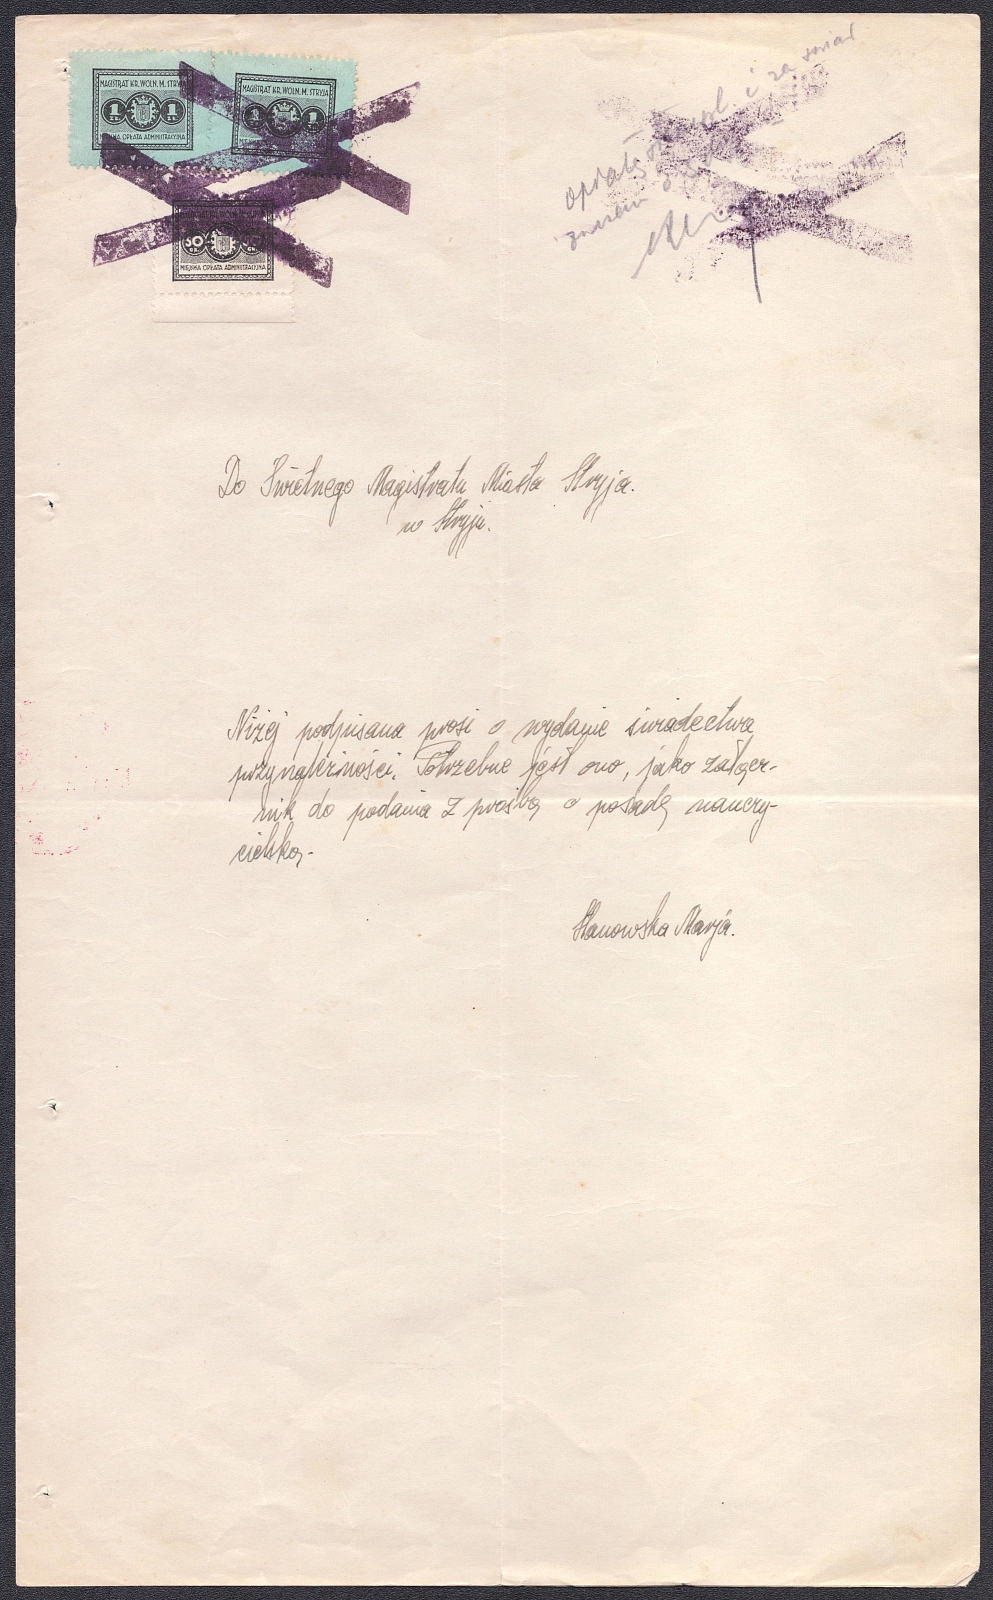 MAGISTRAT KR. WOLN. M. STRYJA
1 ZŁ. 1 ZŁ.
MIEJSKA OPŁATA ADMINISTRACYJNA
MAGISTRAT KR. WOLN. M. STRYJA
1 1
MIEJSKA OPŁATA ADMINISTRACYJNA
MAGISTRAT KR. WOLN. M. STRYJA
50 GR.
MIEJSKA OPŁATA ADMINISTRACYJNA
i za
Do Świetnego Magistratu Miasta Stryja.
w Stryju.
Niżej podpisana prosi o wydanie świadectwa
przynależności. Potrzebne jest ono, jako załącz-
nik do podania z prośbą o posadę nauczy-
cielską.
Stanowska Marja.